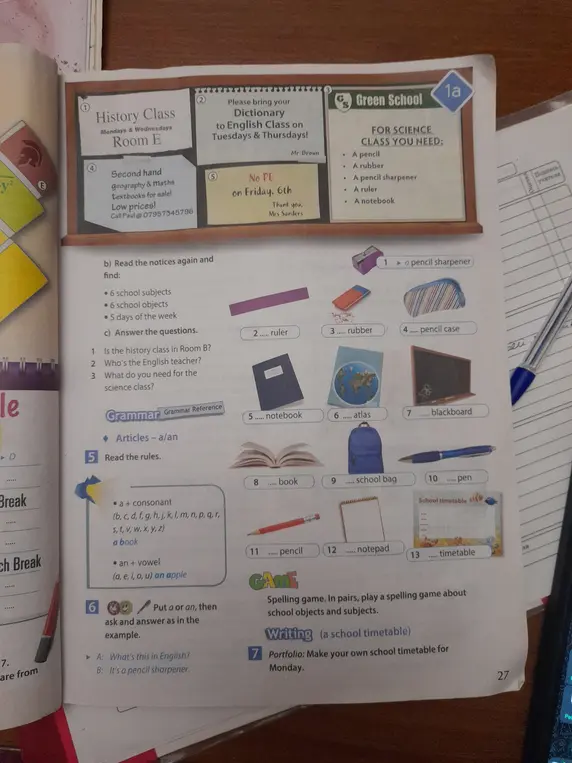 1a
1
History Class
Mondays & Wednesdays
Room E
2
Please bring your
Dictionary
to English Class on
Tuesdays & Thursdays!
3
GS Green School
FOR SCIENCE
CLASS YOU NEED:
• A pencil
• A rubber
• A pencil sharpener
• A ruler
• A notebook
4
Second hand
geography & Maths
textbooks for sale!
Low prices!
5
No PE
on Friday, 6th
Thank you,
Mrs Sanders
b) Read the notices again and
find:
• 6 school subjects
• 6 school objects
• 5 days of the week
c) Answer the questions.
1 Is the history class in Room B?
2 Who's the English teacher?
3 What do you need for the
science class?
Grammar Grammar Reference
Articles – a/an
5 Read the rules.
• a + consonant
(b, c, d, f, g, h, j, k, l, m, n, p, q, r,
s, t, v, w, x, y, z)
a book
• an + vowel
(a, e, i, o, u) an apple
6 Put a or an, then
ask and answer as in the
example.
A: What's this in English?
B: It's a pencil sharpener.
1 a pencil sharpener
2 .... ruler
3 .... rubber
4 .... pencil case
5 .... notebook
6 .... atlas
7 .... blackboard
8 .... book
9 .... school bag
10 .... pen
11 .... pencil
12 .... notepad
School timetable
13 .... timetable
GAME
Spelling game. In pairs, play a spelling game about
school objects and subjects.
Writing (a school timetable)
7 Portfolio: Make your own school timetable for
Monday.
27
E
Break
ch Break
7.
are from